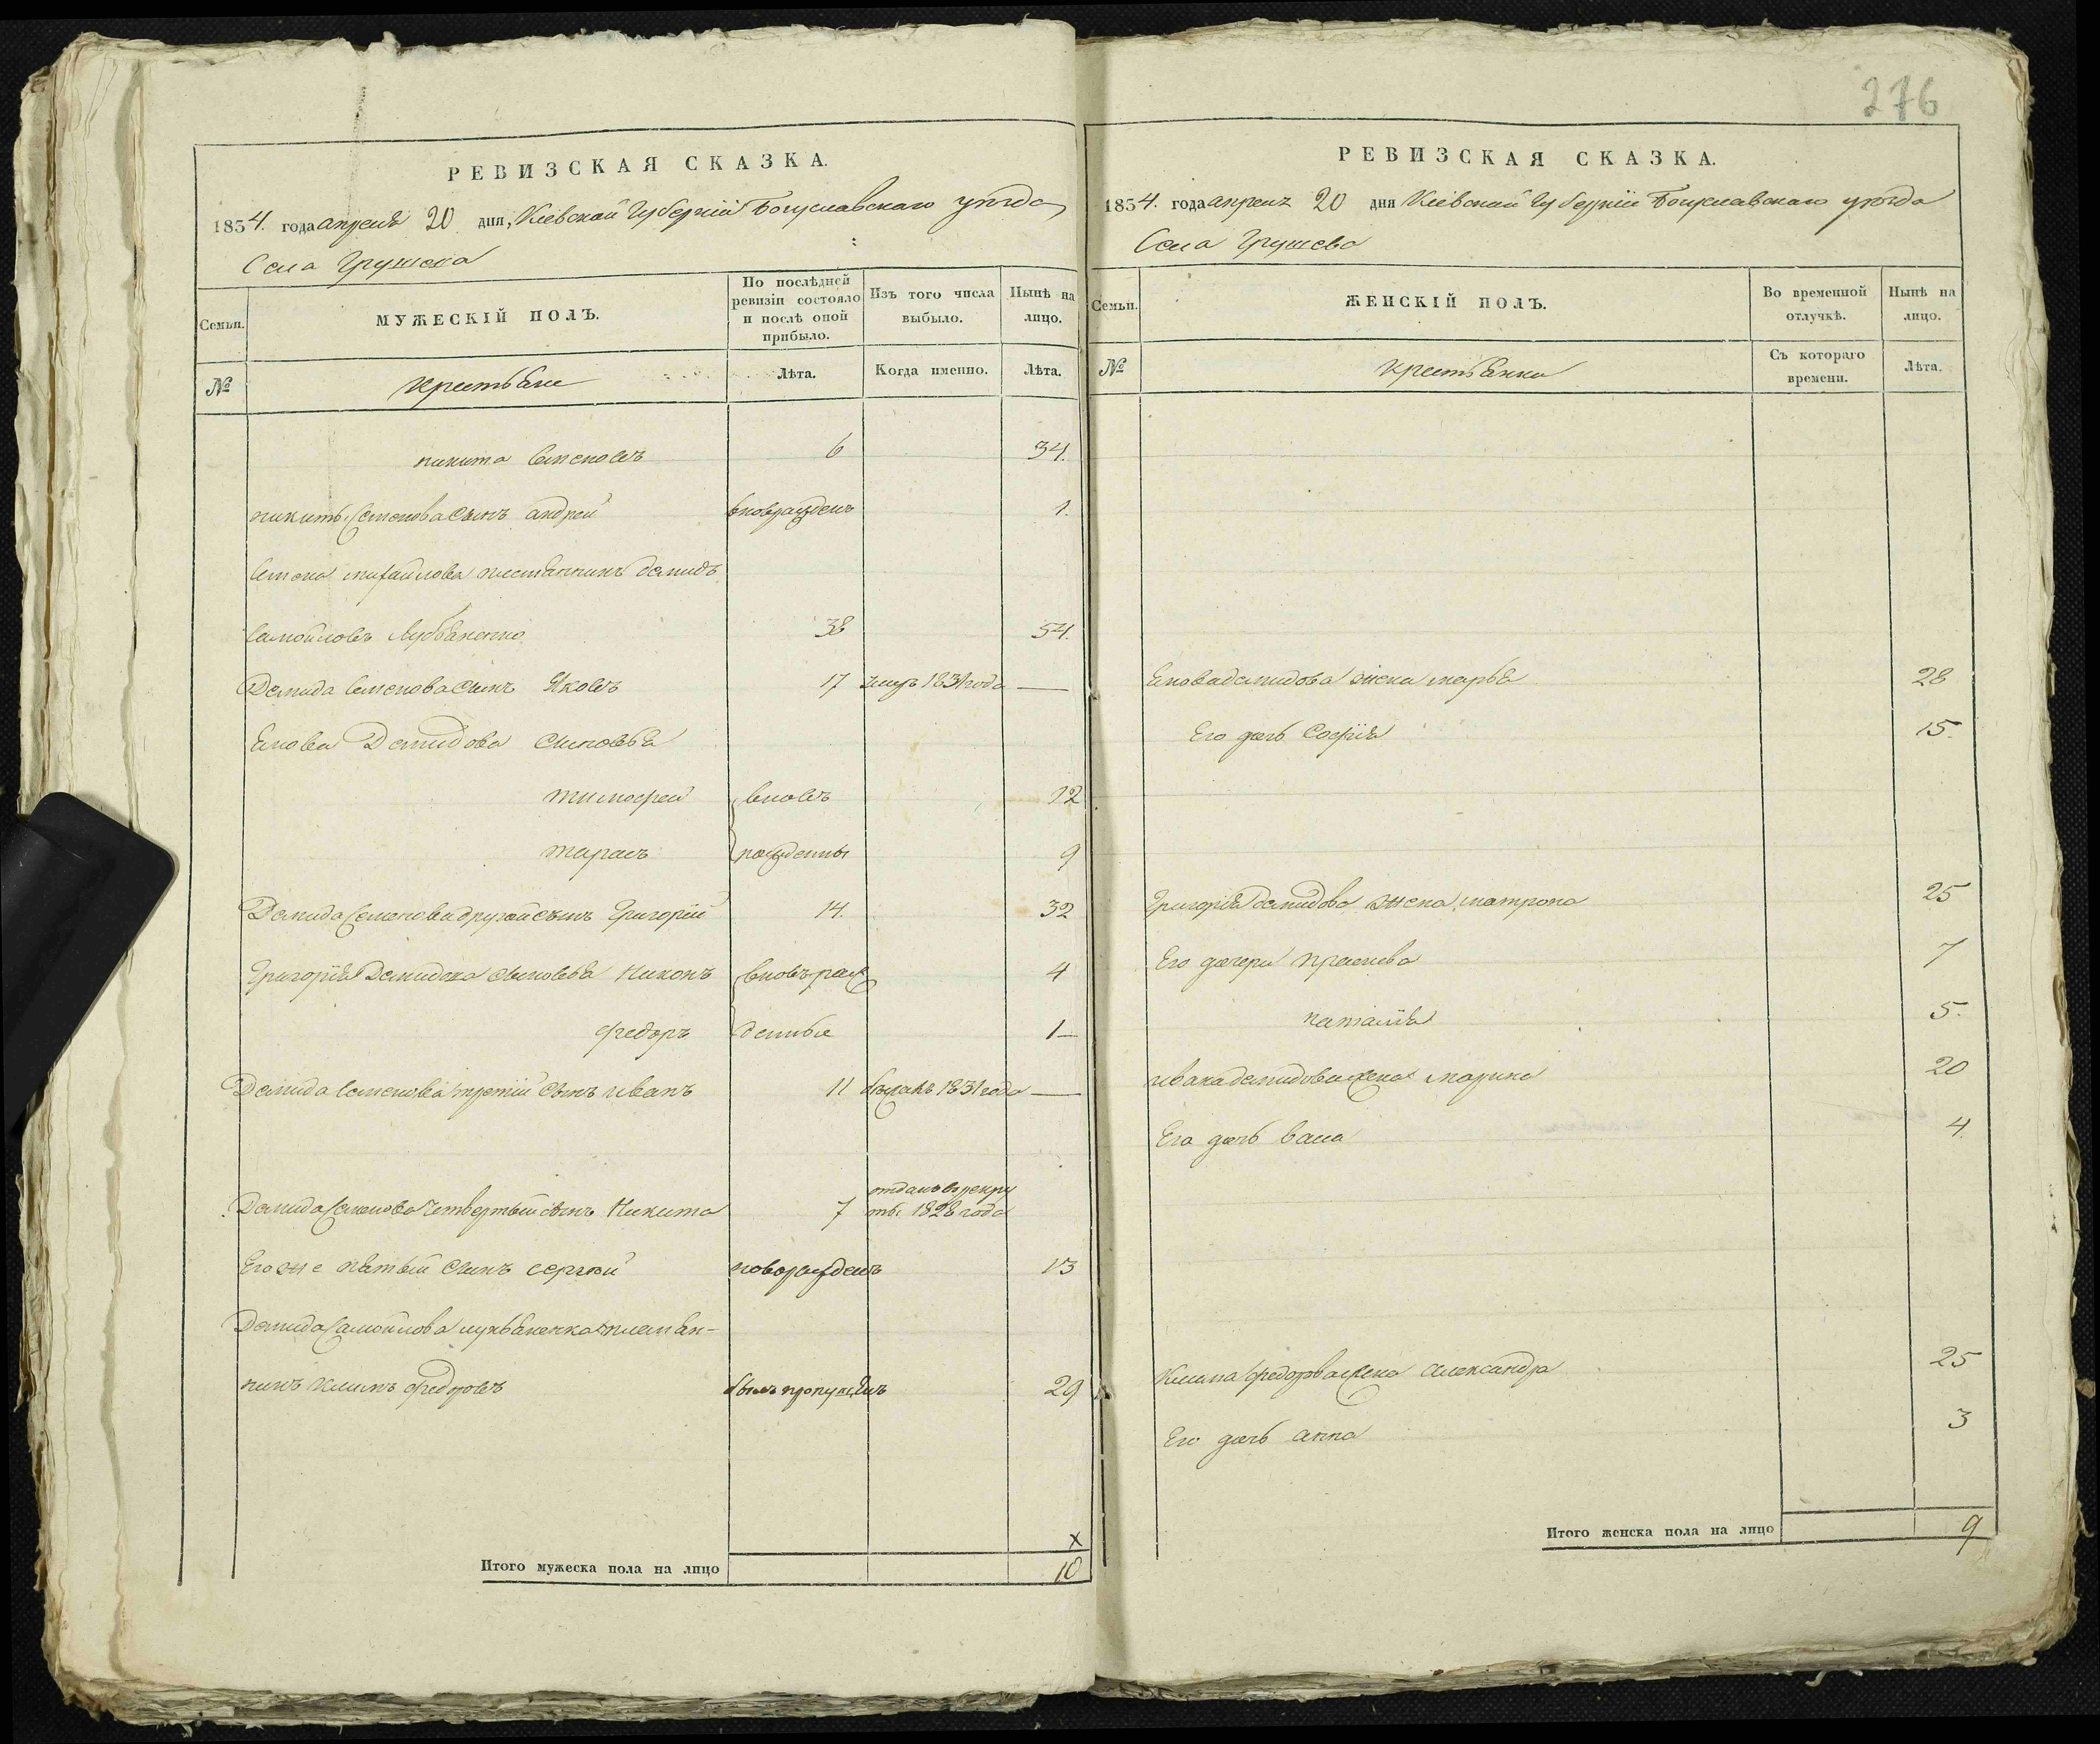 276
РЕВИЗСКАЯ СКАЗКА.
1834. года апреля 20 дня, Кіевской Губерніи Богуславскаго уѣзда
Села Грушева
Семьи.
МУЖЕСКІЙ ПОЛЪ.
По послѣдней ревизіи состояло и послѣ оной прибыло.
Изъ того числа выбыло.
Нынѣ на лицо.
№
крестьяне
Лѣта.
Когда именно.
Лѣта.
никита Семеновъ 6 34.
никиты Семенова сынъ андрей вноврожденъ 1.
Семена михайлова племянникъ демидъ
Самойловъ 38 54.
Демида Семенова сынъ Яковъ 17 умеръ 1831 года —
Якова Демидова сыновья
тимофей вновь 12
тарасъ рожденны 9
Демида Семенова другой сынъ Григорій 14. 32
Григорія Демидова сыновья Никонъ вновь рож 4
федоръ денные 1 —
Демида Семенова третій сынъ иванъ 11 бежалъ 1831 года —
отданъ в рекру
Демида Семенова четвертый сынъ Никита 7 ты 1828 года
Его же пятый сынъ сергей новорожденъ 13
Демида Самойлова племян-
никъ климъ федоровъ былъ пропущенъ 29
х
Итого мужеска пола на лицо 10
РЕВИЗСКАЯ СКАЗКА.
1834. года апреля 20 дня Кіевской Губерніи Богуславскаго уѣзда
Села Грушева
Семьи.
ЖЕНСКІЙ ПОЛЪ.
Во временной отлучкѣ.
Нынѣ на лицо.
№
крестьянки
Съ котораго времени.
Лѣта.
Якова демидова жена марья 28
Его дочь Софія 15.
Григорія демидова жена матрона 25
Его дочери 7
наталія 5.
ивана демидова жена марина 20
Его дочь васа 4.
Клима федорова жена александра 25
Его дочь анна 3
Итого женска пола на лицо 9